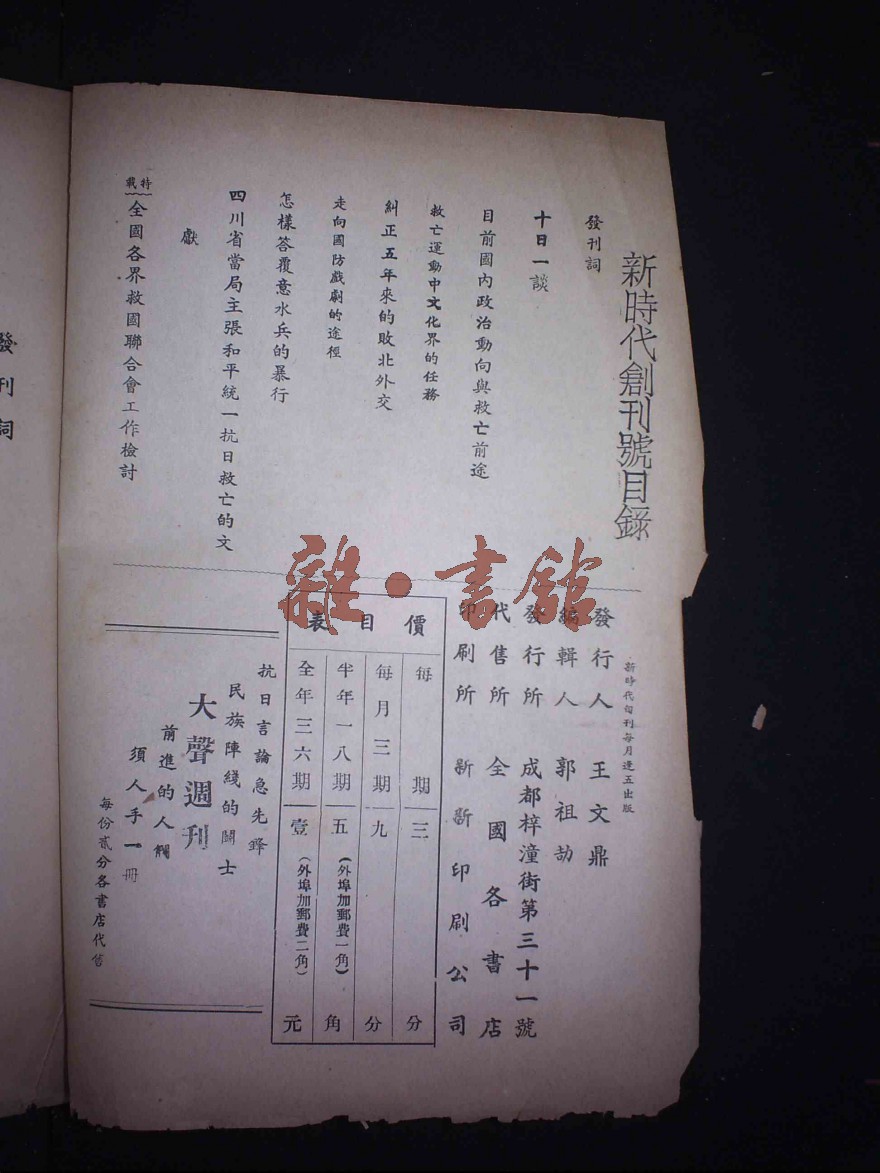 新時代創刊號目錄
發刊詞
十日一談
目前國內政治動向與救亡前途
救亡運動中文化界的任務
糾正五年來的敗北外交
走向國防戲劇的途徑
怎樣答覆意水兵的暴行
四川省當局主張和平統一抗日救亡的文
獻
特載
全國各界救國聯合會工作檢討
新時代旬刊每月逢五出版
發行人 王文鼎
編輯人 郭祖劼
發行所 成都梓潼街第三十一號
代售所 全國各書店
印刷所 新新印刷公司
價目表
每期 三分
每月三期 九分
半年一八期 五角(外埠加郵費一角)
全年三六期 壹元(外埠加郵費二角)
抗日言論急先鋒
民族陣綫的鬪士
大聲週刊
前進的人們
須人手一冊
每份貳分各書店代售
發刊詞
雜·書館